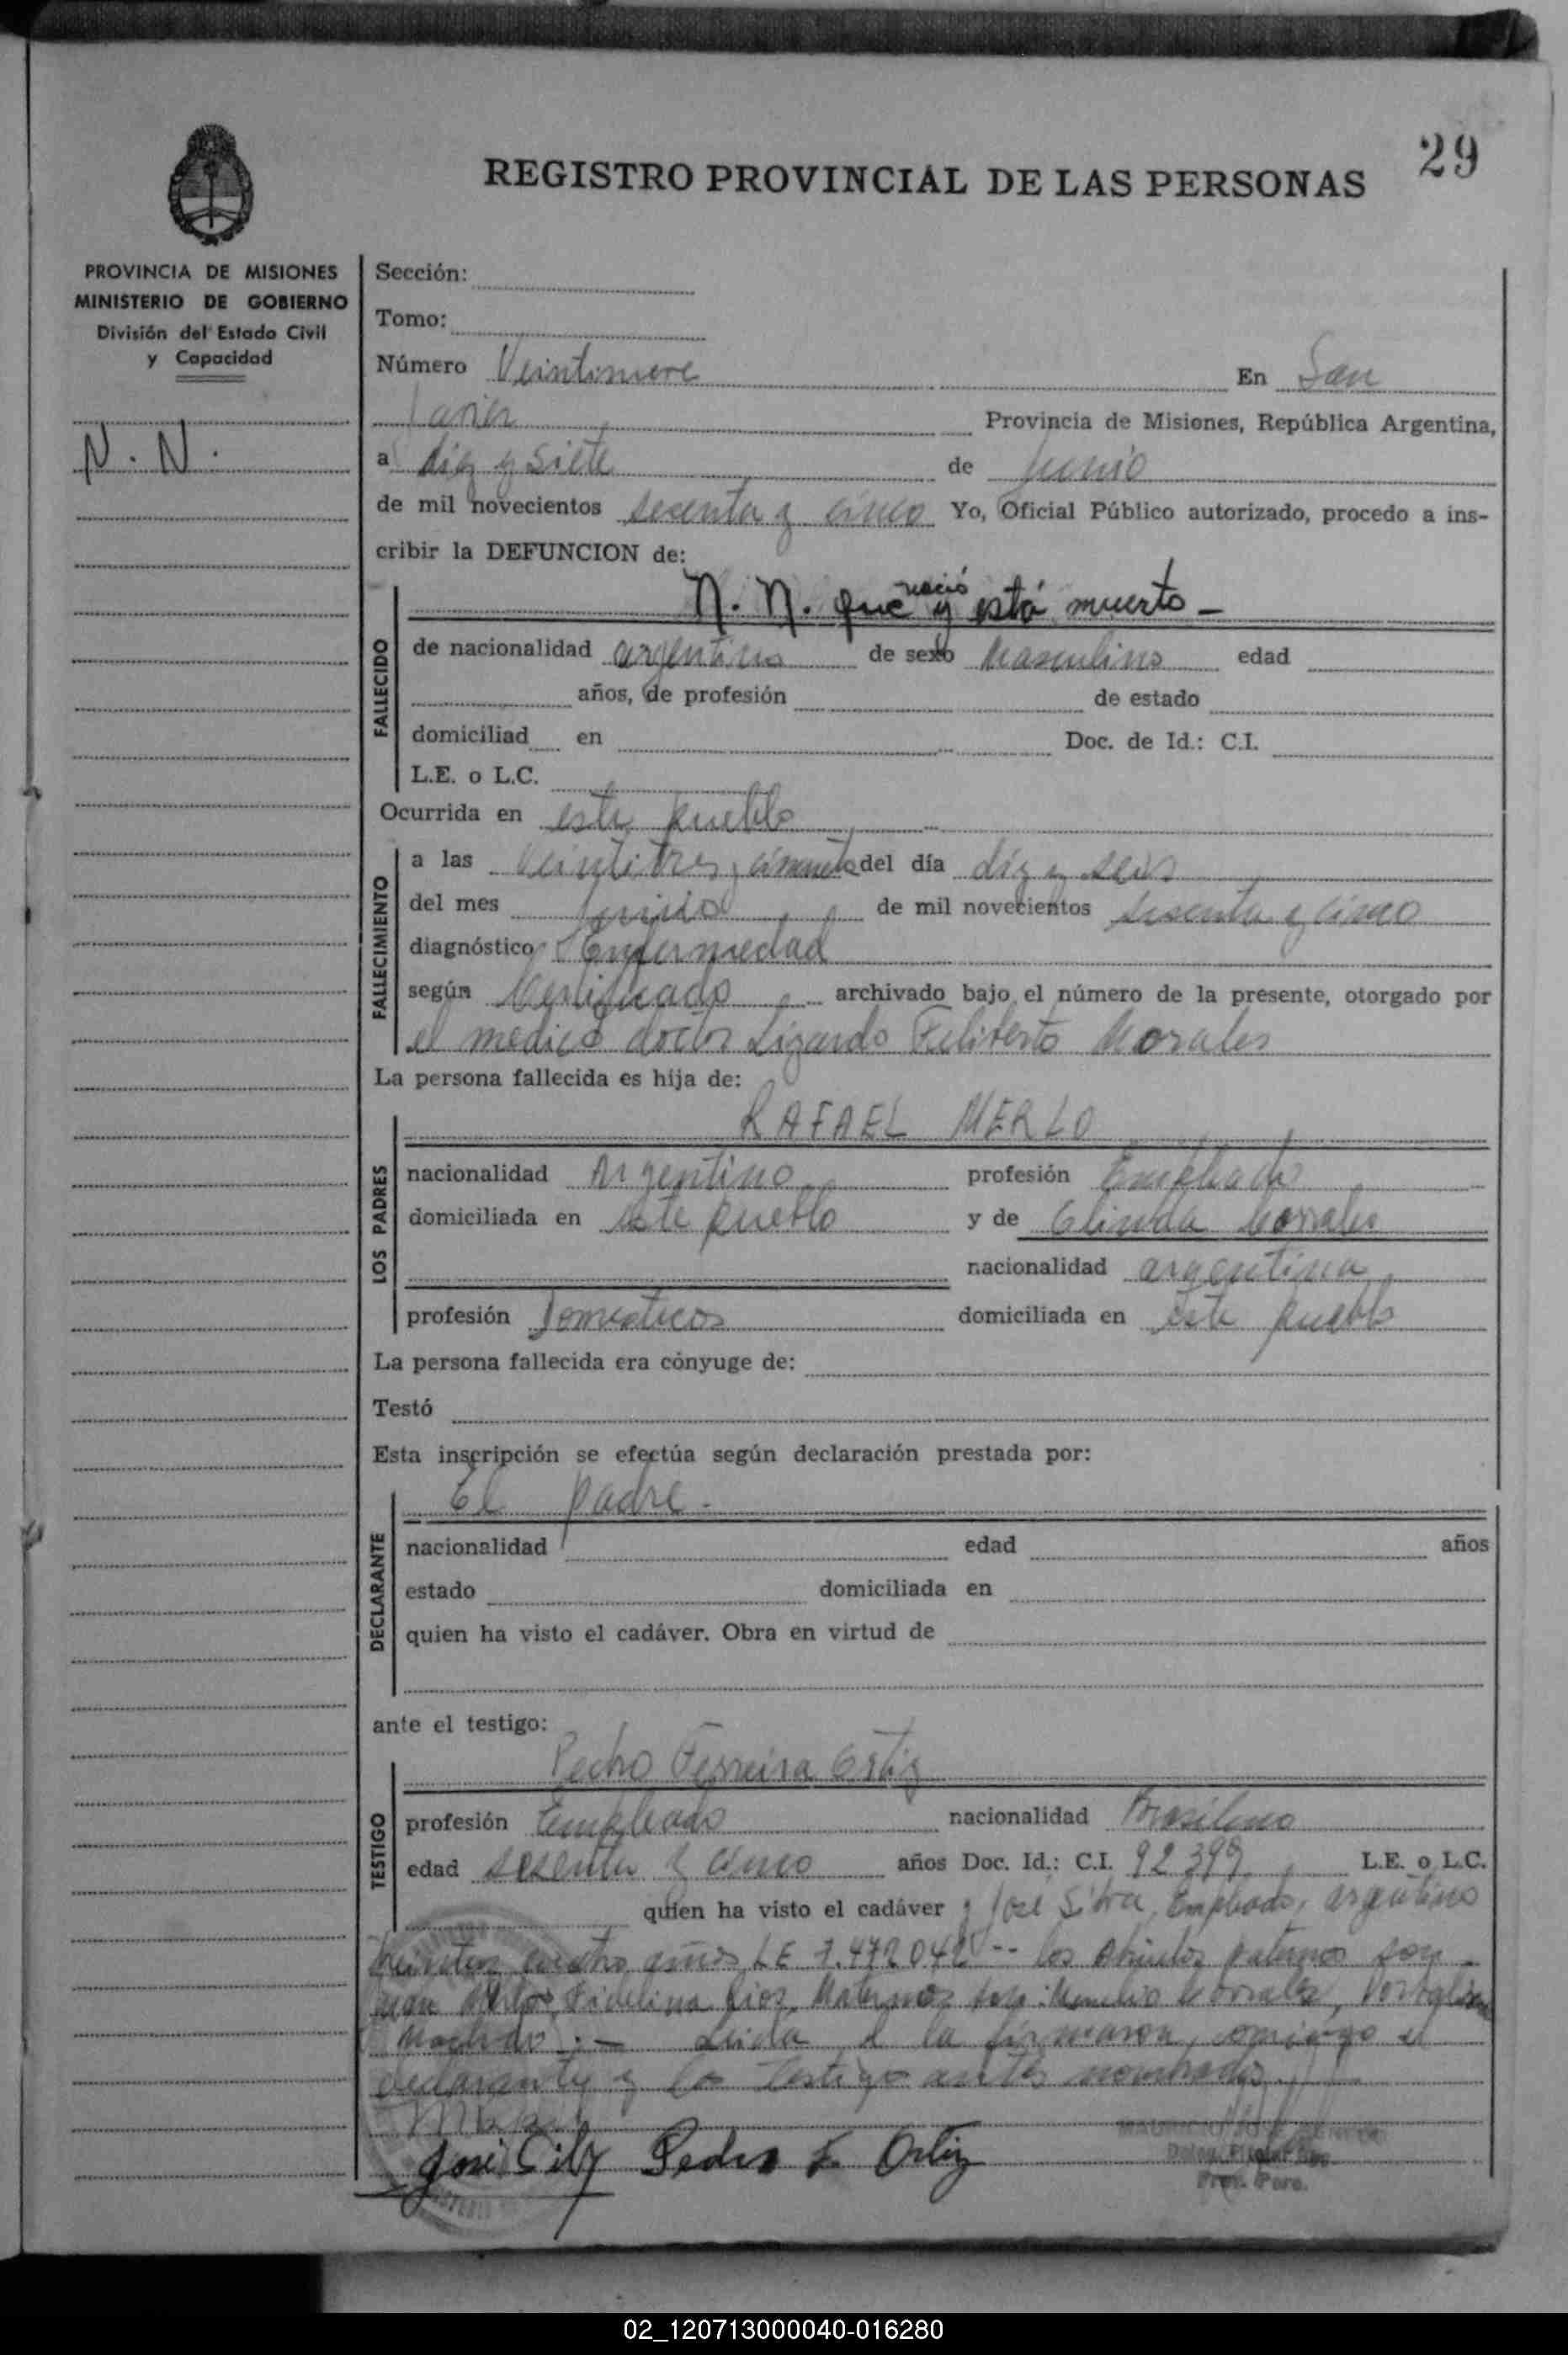 29
REGISTRO PROVINCIAL DE LAS PERSONAS
PROVINCIA DE MISIONES
MINISTERIO DE GOBIERNO
División del Estado Civil
y Capacidad
N. N.
Sección:
Tomo:
Número Veintinueve En San
Javier Provincia de Misiones, República Argentina,
a diez y siete de junio
de mil novecientos sesenta y cinco Yo, Oficial Público autorizado, procedo a ins-
cribir la DEFUNCION de:
N. N. que nació y está muerto -
FALLECIDO
de nacionalidad argentino de sexo Masculino edad
años, de profesión de estado
domiciliad en Doc. de Id.: C.I.
L.E. o L.C.
Ocurrida en este pueblo
FALLECIMIENTO
a las veintitres, del día diez y seis
del mes junio de mil novecientos sesenta y cinco
diagnóstico Enfermedad
según Certificado archivado bajo el número de la presente, otorgado por
el medico doctor Lizardo Feliberto Morales
La persona fallecida es hija de:
RAFAEL MERLO
LOS PADRES
nacionalidad Argentino profesión Empleado
domiciliada en este pueblo y de Glinda
nacionalidad argentina
profesión Domesticos domiciliada en este pueblo
La persona fallecida era cónyuge de:
Testó
Esta inscripción se efectúa según declaración prestada por:
El padre.
DECLARANTE
nacionalidad edad años
estado domiciliada en
quien ha visto el cadáver. Obra en virtud de
ante el testigo:
Pedro Ferreira Ortiz
TESTIGO
profesión Empleado nacionalidad Brasileno
edad sesenta y cinco años Doc. Id.: C.I. 92399 L.E. o L.C.
quien ha visto el cadáver y José Silva, Empleado, argentino
treinta cuatro años LE 7.472.042 -- los abuelos paternos son
Juan Merlo, Fidelina Rios, Maternos son:
Machado .- Leida la firmaron, conmigo el
declarante y los testigo antes nombrados
José Silv Pedro F. Ortiz
02_120713000040-016280